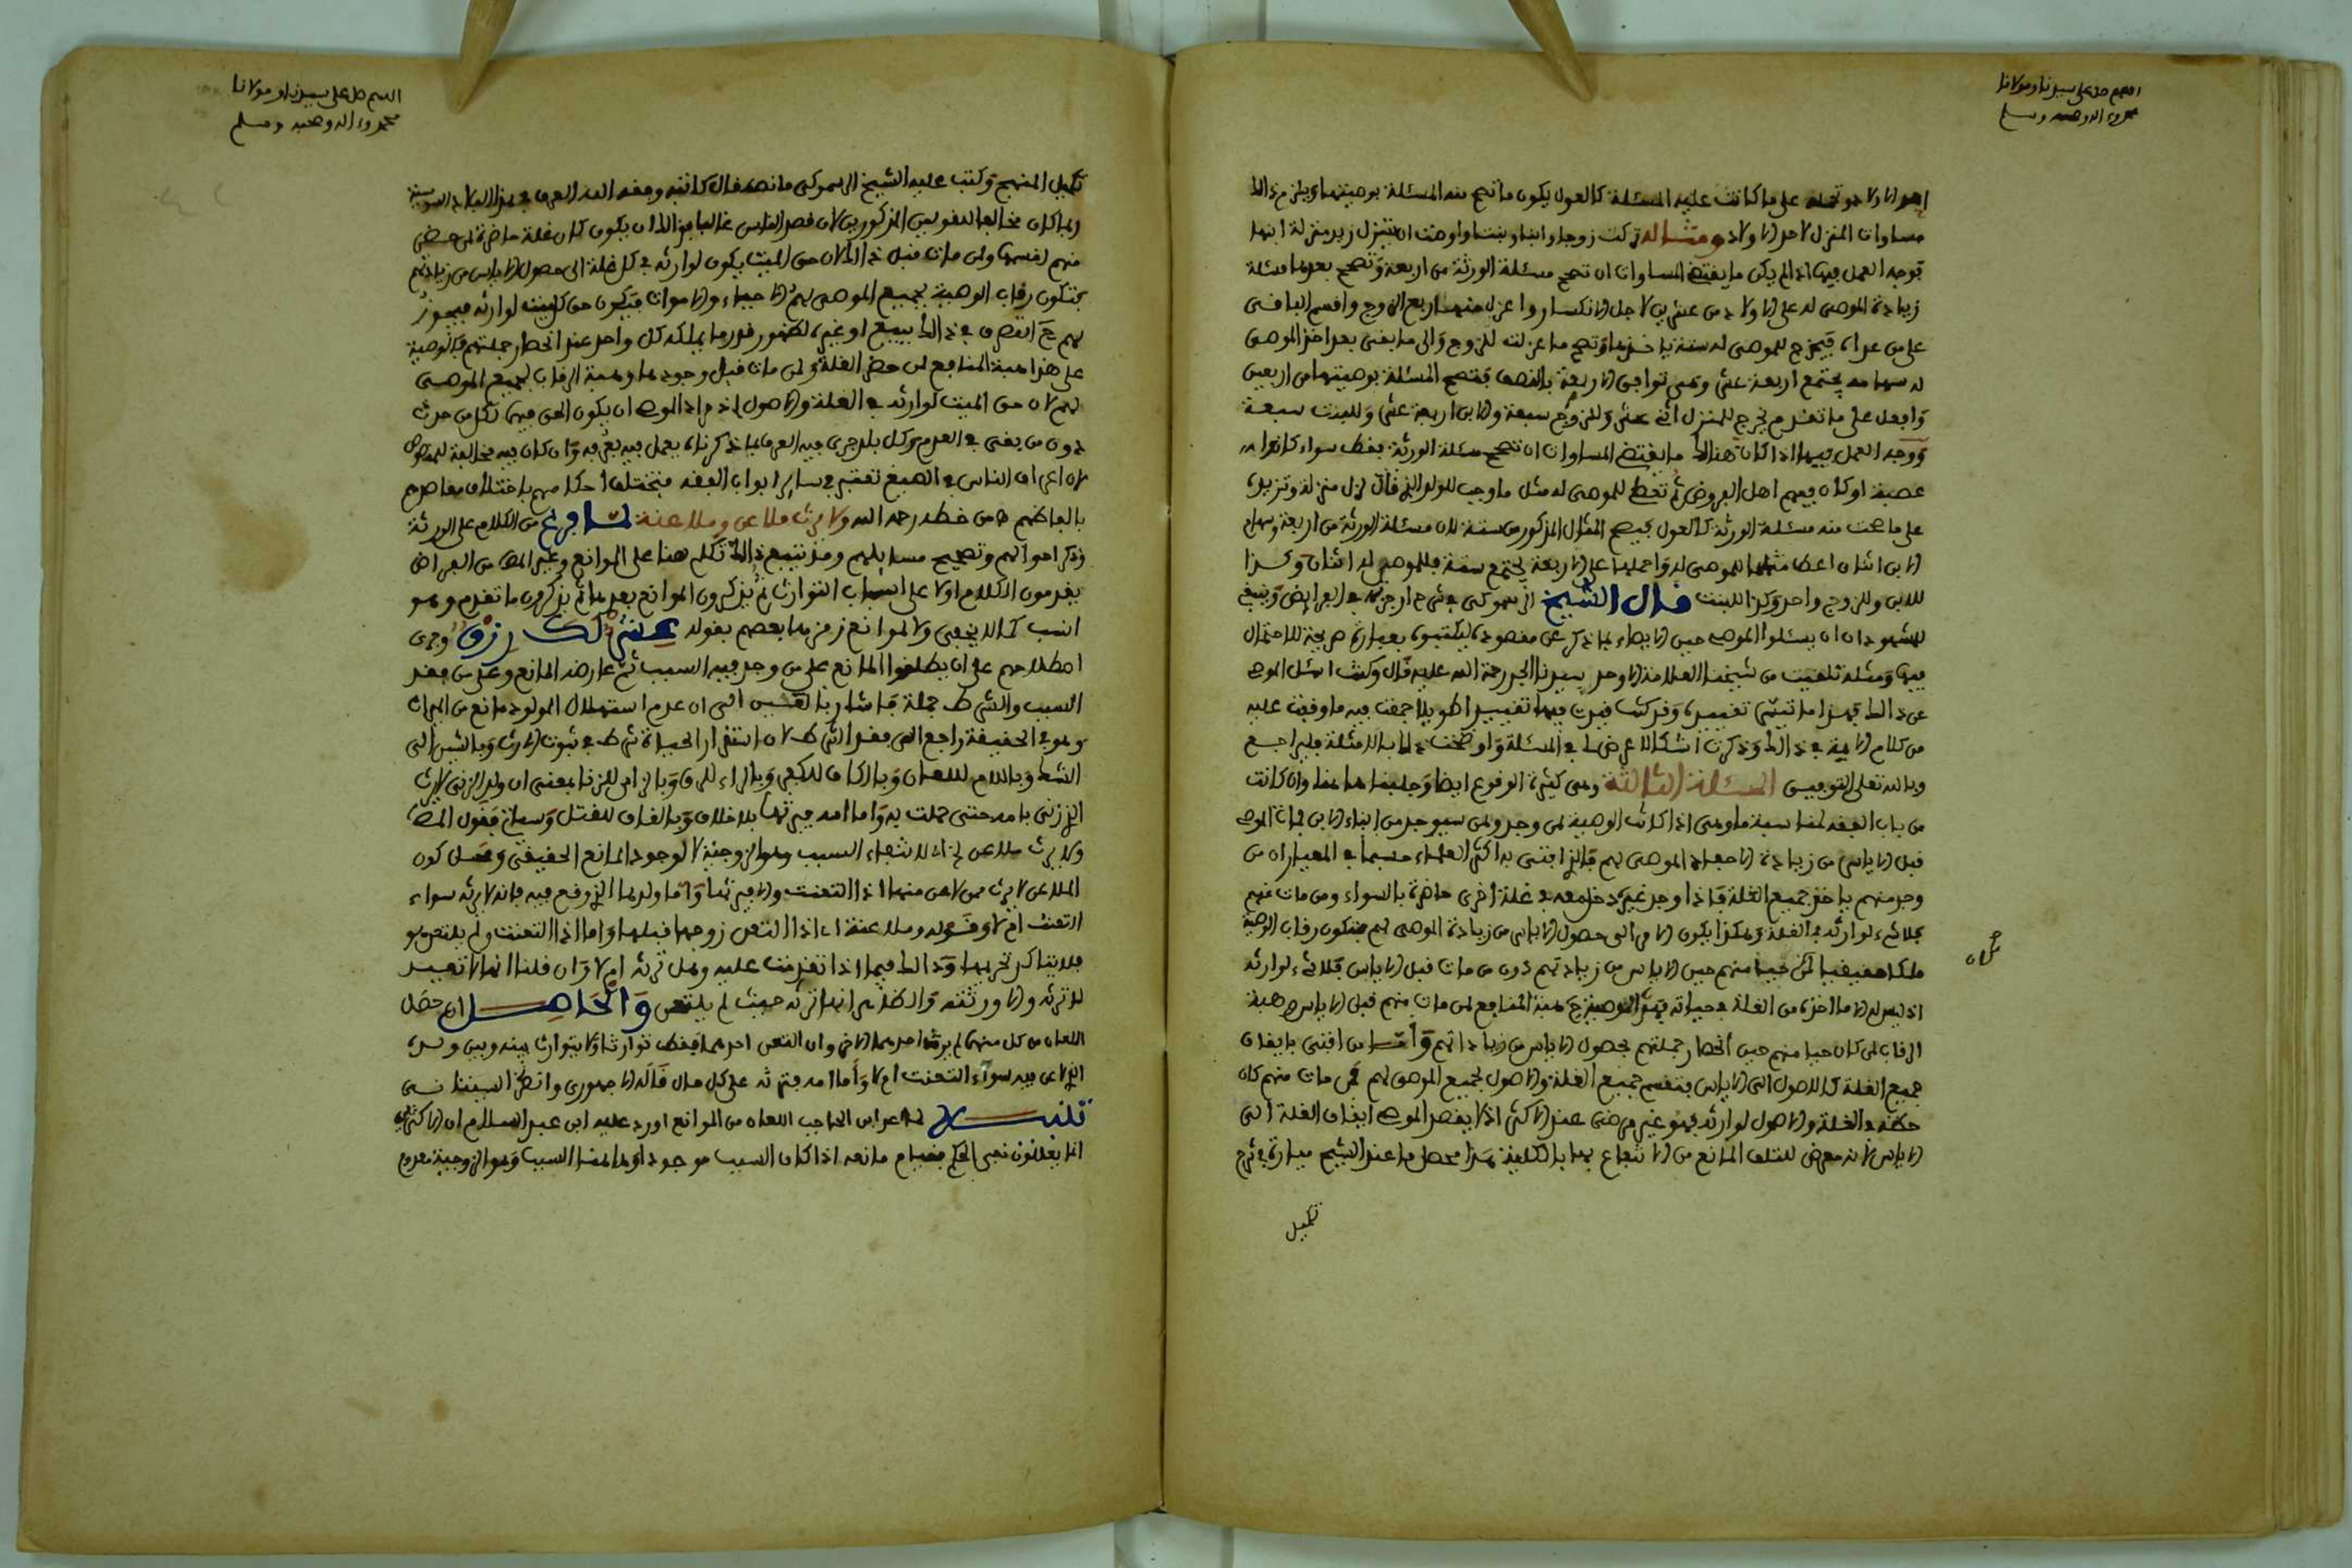 اللهم صل على سيدنا ومولانا
محمد وءاله وصحبه وسلم
احد الاولاد وتحمله على ما كانت عليه المسئلة كالعول يكون ما تصح منه المسئلة بوصيتها ويلزم ذالك
مساوات المنزل لاحد الاولاد ومثاله تركت زوجا وابنا وبنتا واوصت ان يتنزل زيد منزلة ابنها
فوجه العمل فيها اذا لم يكن ما يقتضي المساوات ان تصح مسئلة الورثة من اربعة وتصح بعدها مسئلة
زيادة الموصى له على الاولاد من عشرين لاجل الانكسار واعزل منها ربع الزوج واقسم الباقي
على من عداه فيخرج للموصى له ستة ياخذها وتصح ما عزلت للزوج والى ما بقي بعد اخذ الموصى
له سهامه يجتمع اربعة عشر وهي توافق الاربعة بالنصف فتصح المسئلة بوصيتها من اربعين
وافعل على ما تقدم يخرج للمنزل اثنى عشر وللزوج سبعة وللابن اربعة عشر وللبنت سبعة
ووجه العمل فيها اذا كان هنالك ما يقتضي المساوات ان تصحح مسئلة الورثة فقط سواء كانوا
عصبة او كان فيهم اهل الفروض ثم تعطي للموصى له مثل ما وجب للولد الذي قال نزل منزلة وتزيده
على ما صحت منه مسئلة الورثة كالعول فيصح المثال المذكور من ستة لان مسئلة الورثة من اربعة وسهام
الابن اثنان اعط مثلهما للموصى له واحملهما على الاربعة يجتمع ستة فللموصى له اثنان وكذا
للابن وللزوج واحد وكذا للبنت قال الشيخ الرسموكي في شرح ارجوزته في الفرايض وينبغي
للشهود ان يسئلوا الموصي حين الايصاء بما ذكر عن مقصوده ليكتبوه بعبارة صريحة للاحتمال
فيها ومثله تلقيت من شيخنا العلامة الاوحد سيدنا الجد رحمة الله عليه قال وكنت اسئل الموصي
عن ذالك
من كلام الايمة في ذالك وذكرت اشكالا عرض لي في المسئلة واوضحت ذالك بالامثلة فليراجع
وبالله تعلى التوفيق المسئلة الثالثة وهي كثيرة الوقوع ايضا وجلبناها هنا وان كانت
من باب الفقه لمناسبة ما وهي اذا كانت الوصية لمن وجد ولمن سيوجد من ابناء الابن الموصي
قبل الاياس من زيادة الاحفاد الموصى لهم فالذي افتى به اكثر العلماء حسبما في المعيار ان من
وجد منهم ياخذ جميع الغلة فاذا وجد غيره دخل معه في غلة اخرى حاضرة بالسواء ومن مات منهم
فلا شيء لوارثه في الغلة وهكذا يكون الامر الى حصول الاياس من زيادة الموصى لهم فتكون رقاب الوصية
ملكا حقيقيا لمن كان حيا منهم حين الاياس من زيادتهم دون من مات قبل الاياس فلا شيء لوارثه
اذ ليس له الا ما اخذه من الغلة في حياته فهذه الوصية كهبة المنافع لمن مات منهم قبل الاياس وهبة
الرقاب لمن كان حيا منهم حين انحصار جملتهم بحصول الاياس من زيادتهم واما من افتى بايقاف
جميع الغلة كالاصول الى الاياس فتقسم جميع الغلة والاصول لجميع الموصى لهم فمن مات منهم كان
حظه في الغلة والاصول لوارثه فهو غير مرضي عند الاكثر اذ لم يقصد الموصي ايقاف الغلة الى
الاياس لانه معرض للتلف المانع من الانتفاع بها بالكلية هذا محصل ما عند الشيخ ميارة في شرح
تكميل
اللهم صل على سيدنا ومولانا
محمد وءاله وصحبه وسلم
تكميل المنهج وكتب عليه الشيخ الرسموكي ما نصه قال كاتبه وفقه الله العرف في هذا البلاد السوسية
ربما كان مخالفا للقولين المذكورين لان قصد الناس غالبا في هذا ان يكون كل غلة حاضرة لمن حضر
منهم لقسمها ومن مات قبل ذالك لان حق الميت يكون لوارثه في كل غلة الى حصول الاياس من زيادتهم
فتكون رقاب الوصية لجميع الموصى لهم الاحياء والاموات فيكون حق كل ميت لوارثه فيجوز
لهم حج التصرف في ذالك ببيع او غيره لظهور قدر ما يملكه كل واحد عند انحصار جملتهم فالوصية
على هذا هبة المنافع لمن حضر الغلة ولمن مات قبل وجودها وهبة الرقاب لجميع الموصى
لهم لان حق الميت لوارثه في الغلة والاصول اذ مراد الموصي ان يكون الحق فيها لكل من حدث
دون من بقي في العدم وكل بلد جرى فيه العرف بما ذكرناه يعمل فيه بعرفه وان كان فيه مخالفة للمنصوص
لان اعراف الناس في الصيغ تعتبر في سائر ابواب الفقه فتختلف احكامهم باختلاف مقاصدهم
بالفاظهم ها من خطه رحمه الله ولا يرث ملاعن وملاعنة لما فرغ من الكلام على الورثة
وذكر احوالهم وتصحيح مسايلهم ومن تتبع ذالك تكلم هنا على الموانع وغير المص من الفراض
يقدمون الكلام اولا على اسباب التوارث ثم يذكرون الموانع بعدها ثم يذكرون ما تقدم وهو
انسب كما لا يخفى وللموانع رمز بها بعضهم بقوله عش لك رزق وجرى
اصطلاحهم على ان يطلقوا المانع على من وجد فيه السبب ثم عارضه المانع وعلى من فقد
السبب والشرط جملة فاشار بالعين الى ان عدم استهلال المولود مانع من الميراث
وهو في الحقيقة راجع الى فقد الشرط لان استقرار الحياة شرط في ثبوت الارث وبالشين الى
الشك وباللام للعان وبالكاف للكفر وبالراء للرق وبالزاي للزنا بمعنى ان ولد الزنى لا يرث
الذي زنى بامه حتى حملت به واما امه فيرثها بلا خلاف وبالقاف للقتل وسياتي فقول المص
ولا يرث ملاعن الخ لانتفاء السبب وهو الزوجية لا لوجود المانع الحقيقي ومحل كون
الملاعن لا يرث من لاعن منها اذا التعنت والا فيرثها واما ولدها الذي وقع فيه فانه لا يرثه سواء
التعنت ام لا وقوله وملاعنة اي اذا التعن زوجها قبلها واما اذا التعنت ولم يلتعن هو
فلا يتاكد تحريمها وذالك فيما اذا تقدمت عليه وهل ترثه ام لا وان قلنا انها لا تعيد
لا ترثه والا ورثته والظاهر انها ترثه حيث لم يلتعن والحاصل ان حصل
اللعان من كل منهما لم يرث احدهما الاخر وان التعن احدهما فقط توارثا ولا يتوارث بينه وبين ولده
الذي لاعن فيه سواء التعنت ام لا واما امه فترثه على كل حال قاله الاجهوري وانظر البناني
تنبيه لما عد ابن الحاجب اللعان من الموانع اورد عليه ابن عبد السلام ان الاكثرين
انما يعللون نفي الحكم بقيام مانعه اذا كان السبب موجودا وهاهنا السبب وهو الزوجية معدوم